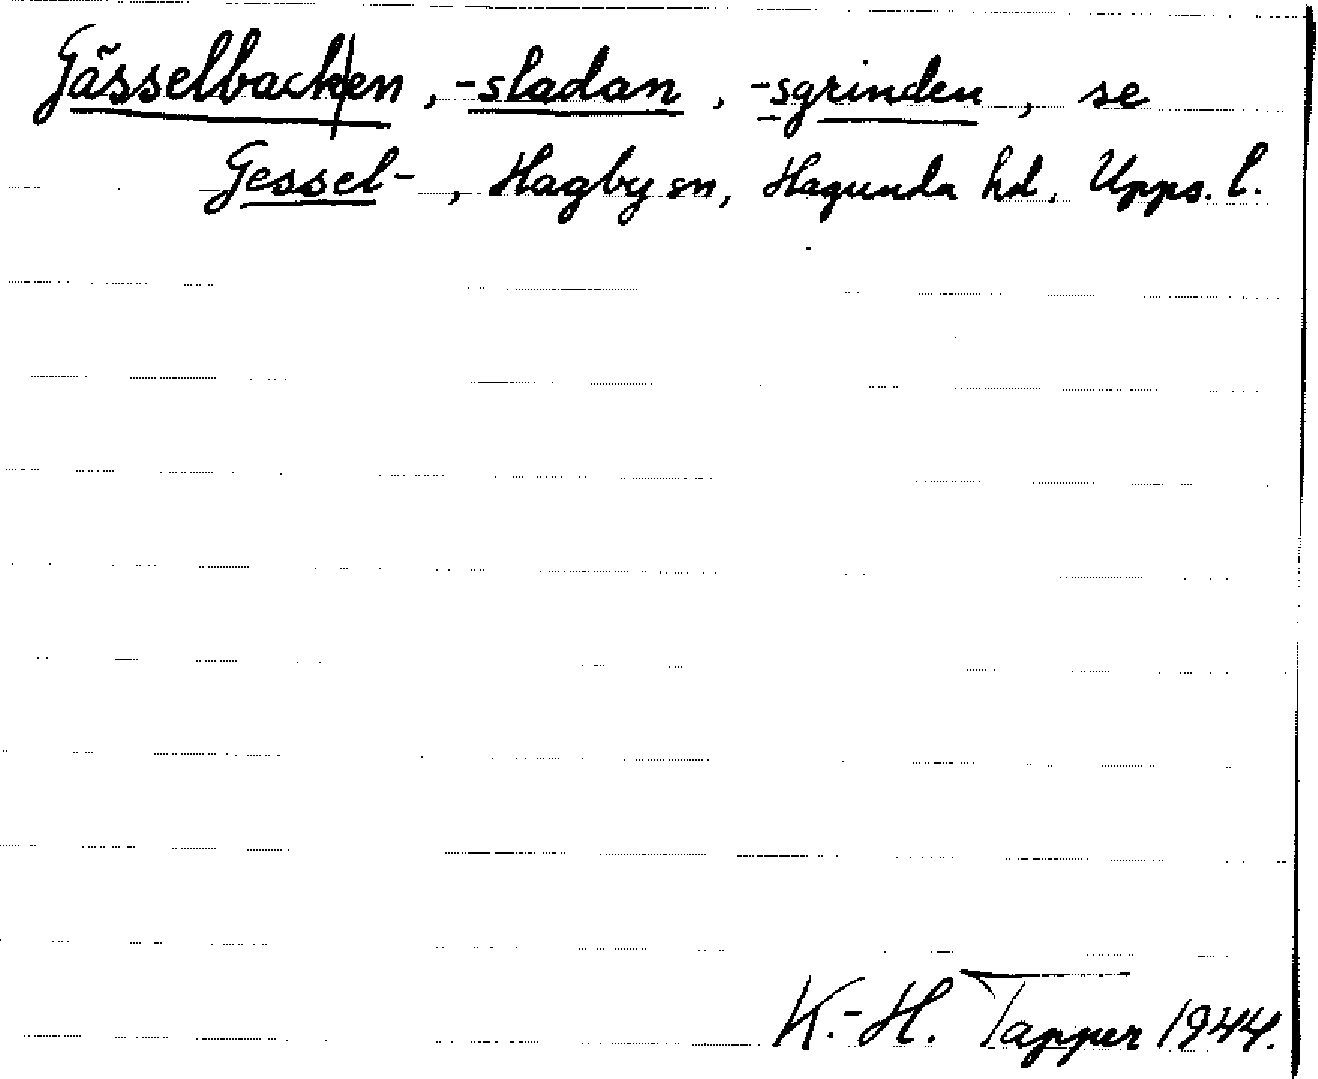 Gässelbacken, -sladan, -sgrinden, se
Gessel-, Hagby sn, Hagunda hd, Upps. l.
K.-H. Tapper 1944.